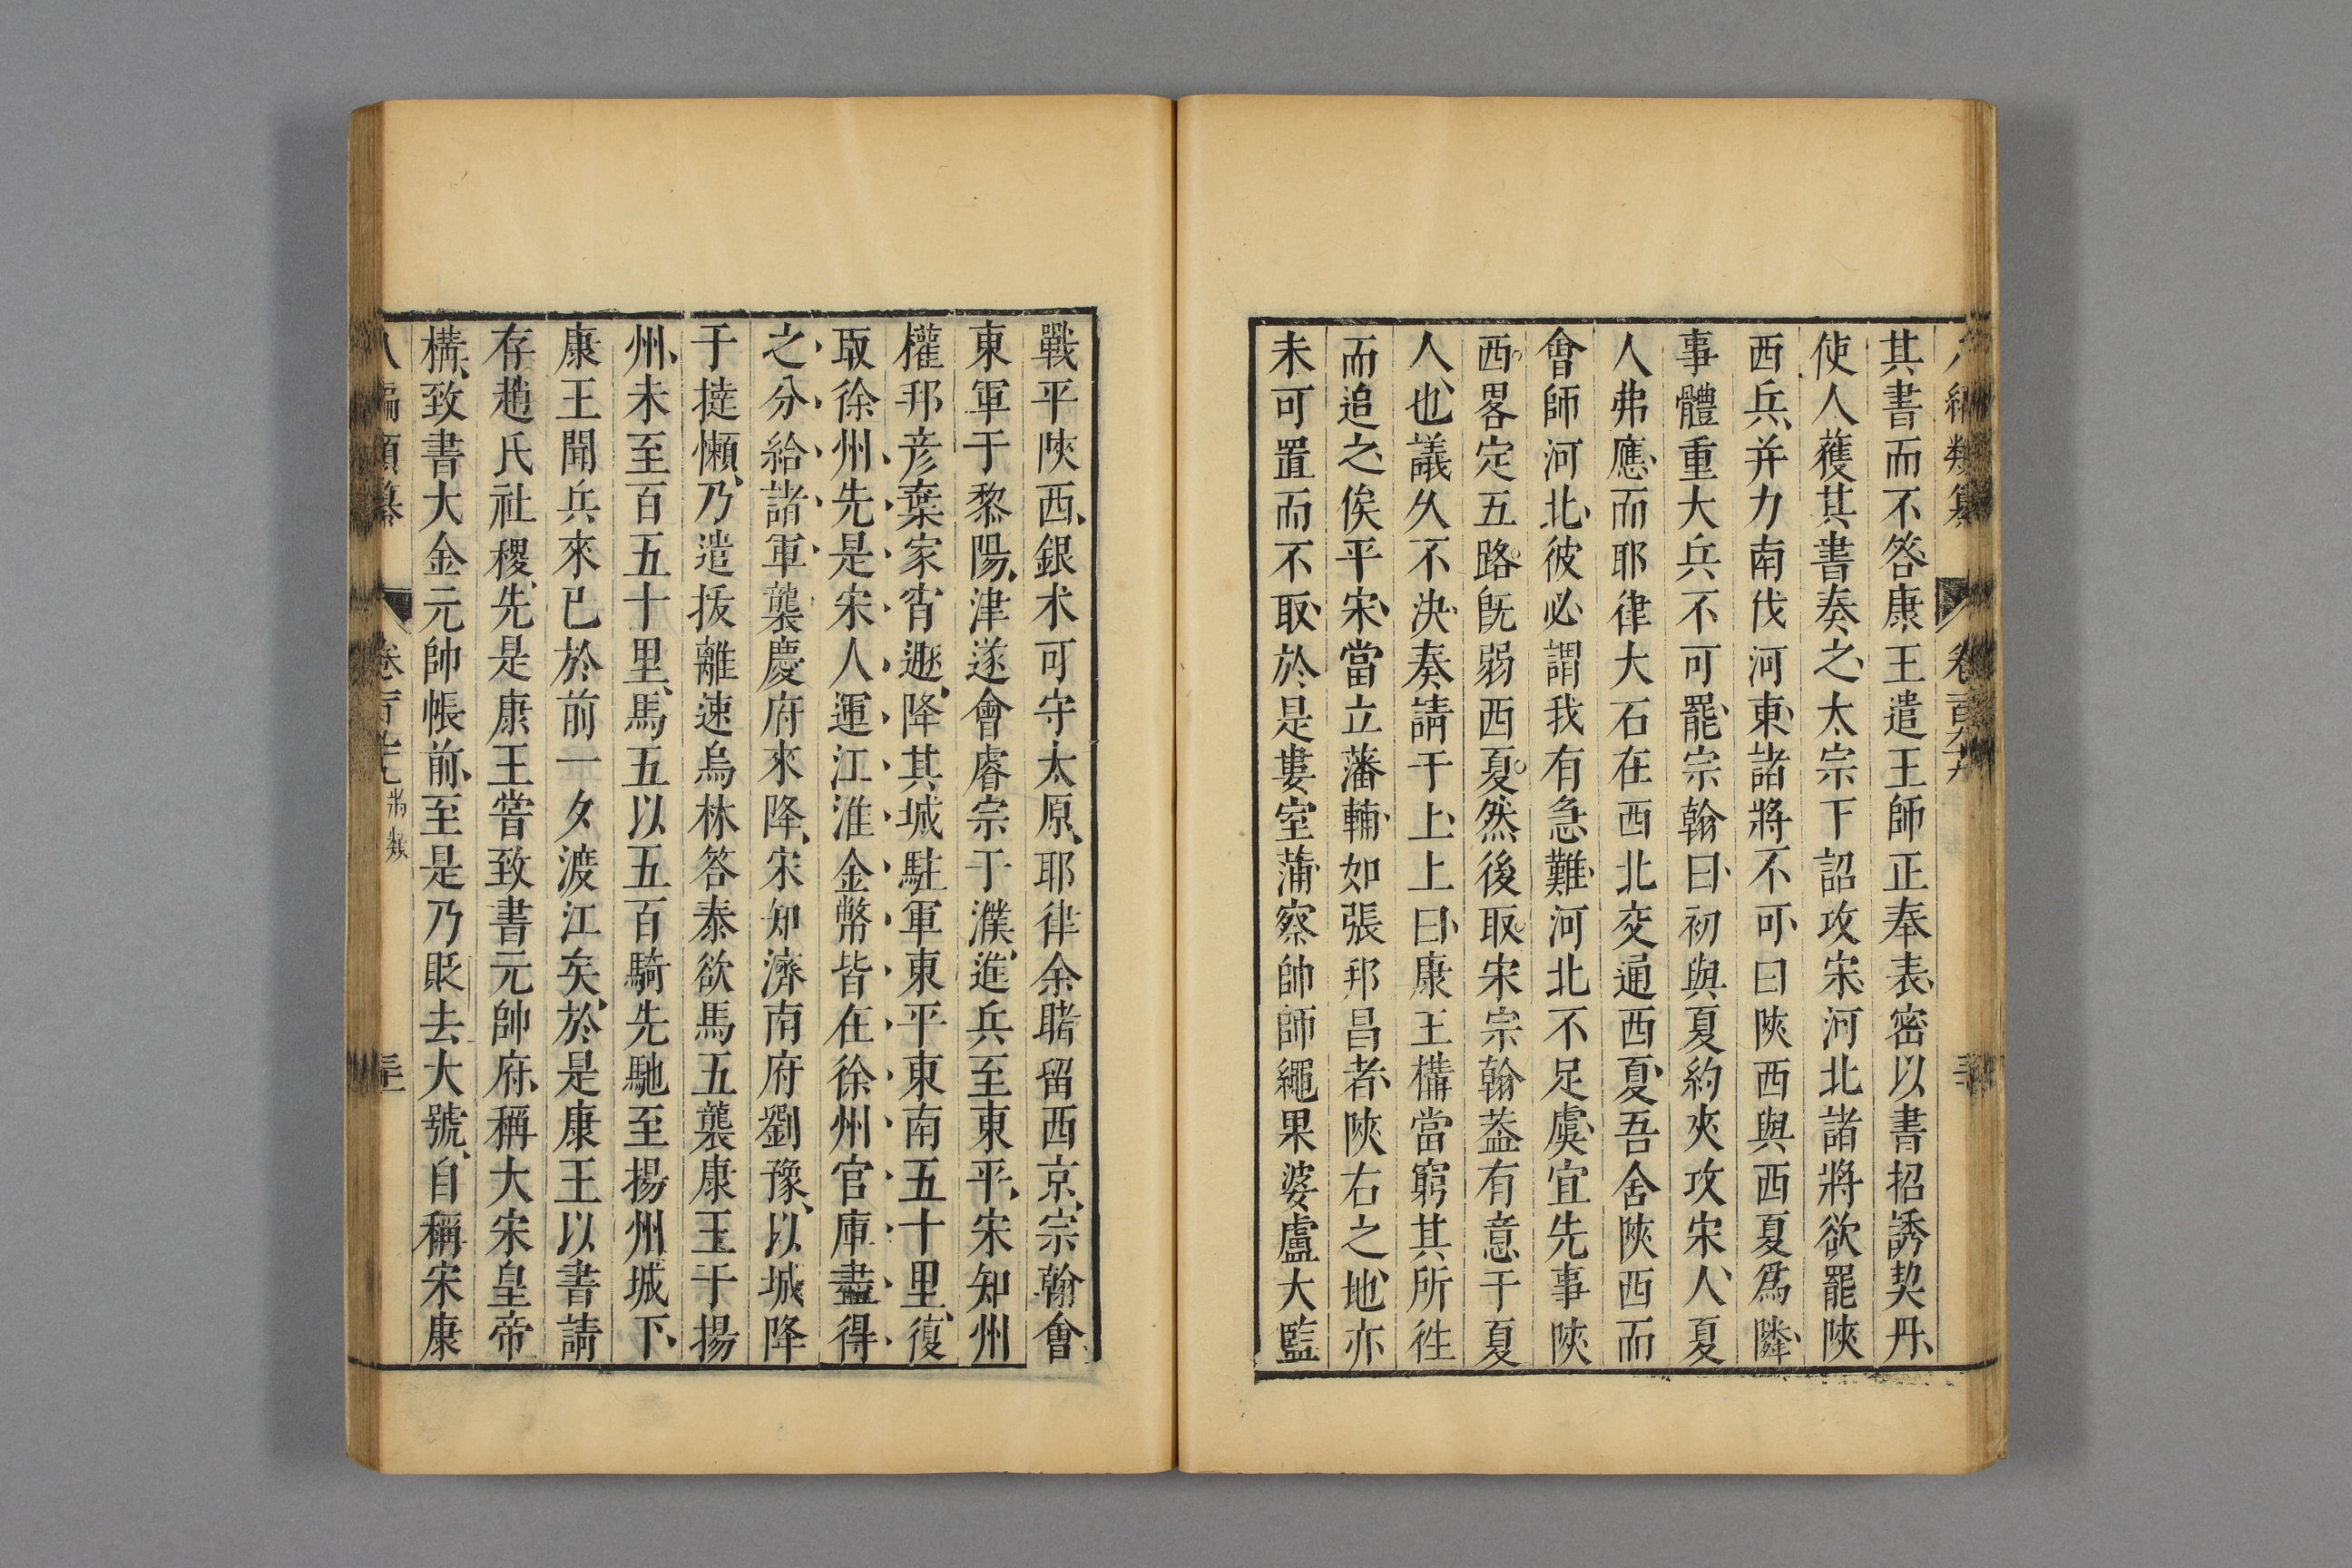 其書而不答康王遣王師正奉表密以書招誘契丹
使人獲其書奏之太宗下詔攻宋河北諸將欲罷陝
西兵并力南伐河東諸將不可曰陝西與西夏爲隣
事體重大兵不可罷宗翰曰初與夏約夾攻宋人夏
人弗應而耶律大石在西北交通西夏吾舍陝西而
會師河北彼必謂我有急難河北不足虞宜先事陝
西畧定五路旣弱西夏然後取宋宗翰葢有意于夏
人也議久不決奏請于上上曰康王構當窮其所徃
而追之俟平宋當立藩輔如張邦昌者陝右之地亦
未可置而不取於是婁室蒲察帥師繩果婆盧大監
戰平陝西銀术可守太原耶律余睹留西京宗翰會
東軍于黎陽津遂會睿宗于濮進兵至東平宋知州
權邦彥棄家宵遯降其城駐軍東平東南五十里復
取徐州先是宋人運江淮金幣皆在徐州官庫盡得
之分給諸軍襲慶府來降宋知濟南府劉豫以城降
于撻懶乃遣拔離速烏林答泰欲馬五襲康王于揚
州未至百五十里馬五以五百騎先馳至揚州城下
康王聞兵來已於前一夕渡江矣於是康王以書請
存趙氏社稷先是康王嘗致書元帥府稱大宋皇帝
構致書大金元帥帳前至是乃貶去大號自稱宋康